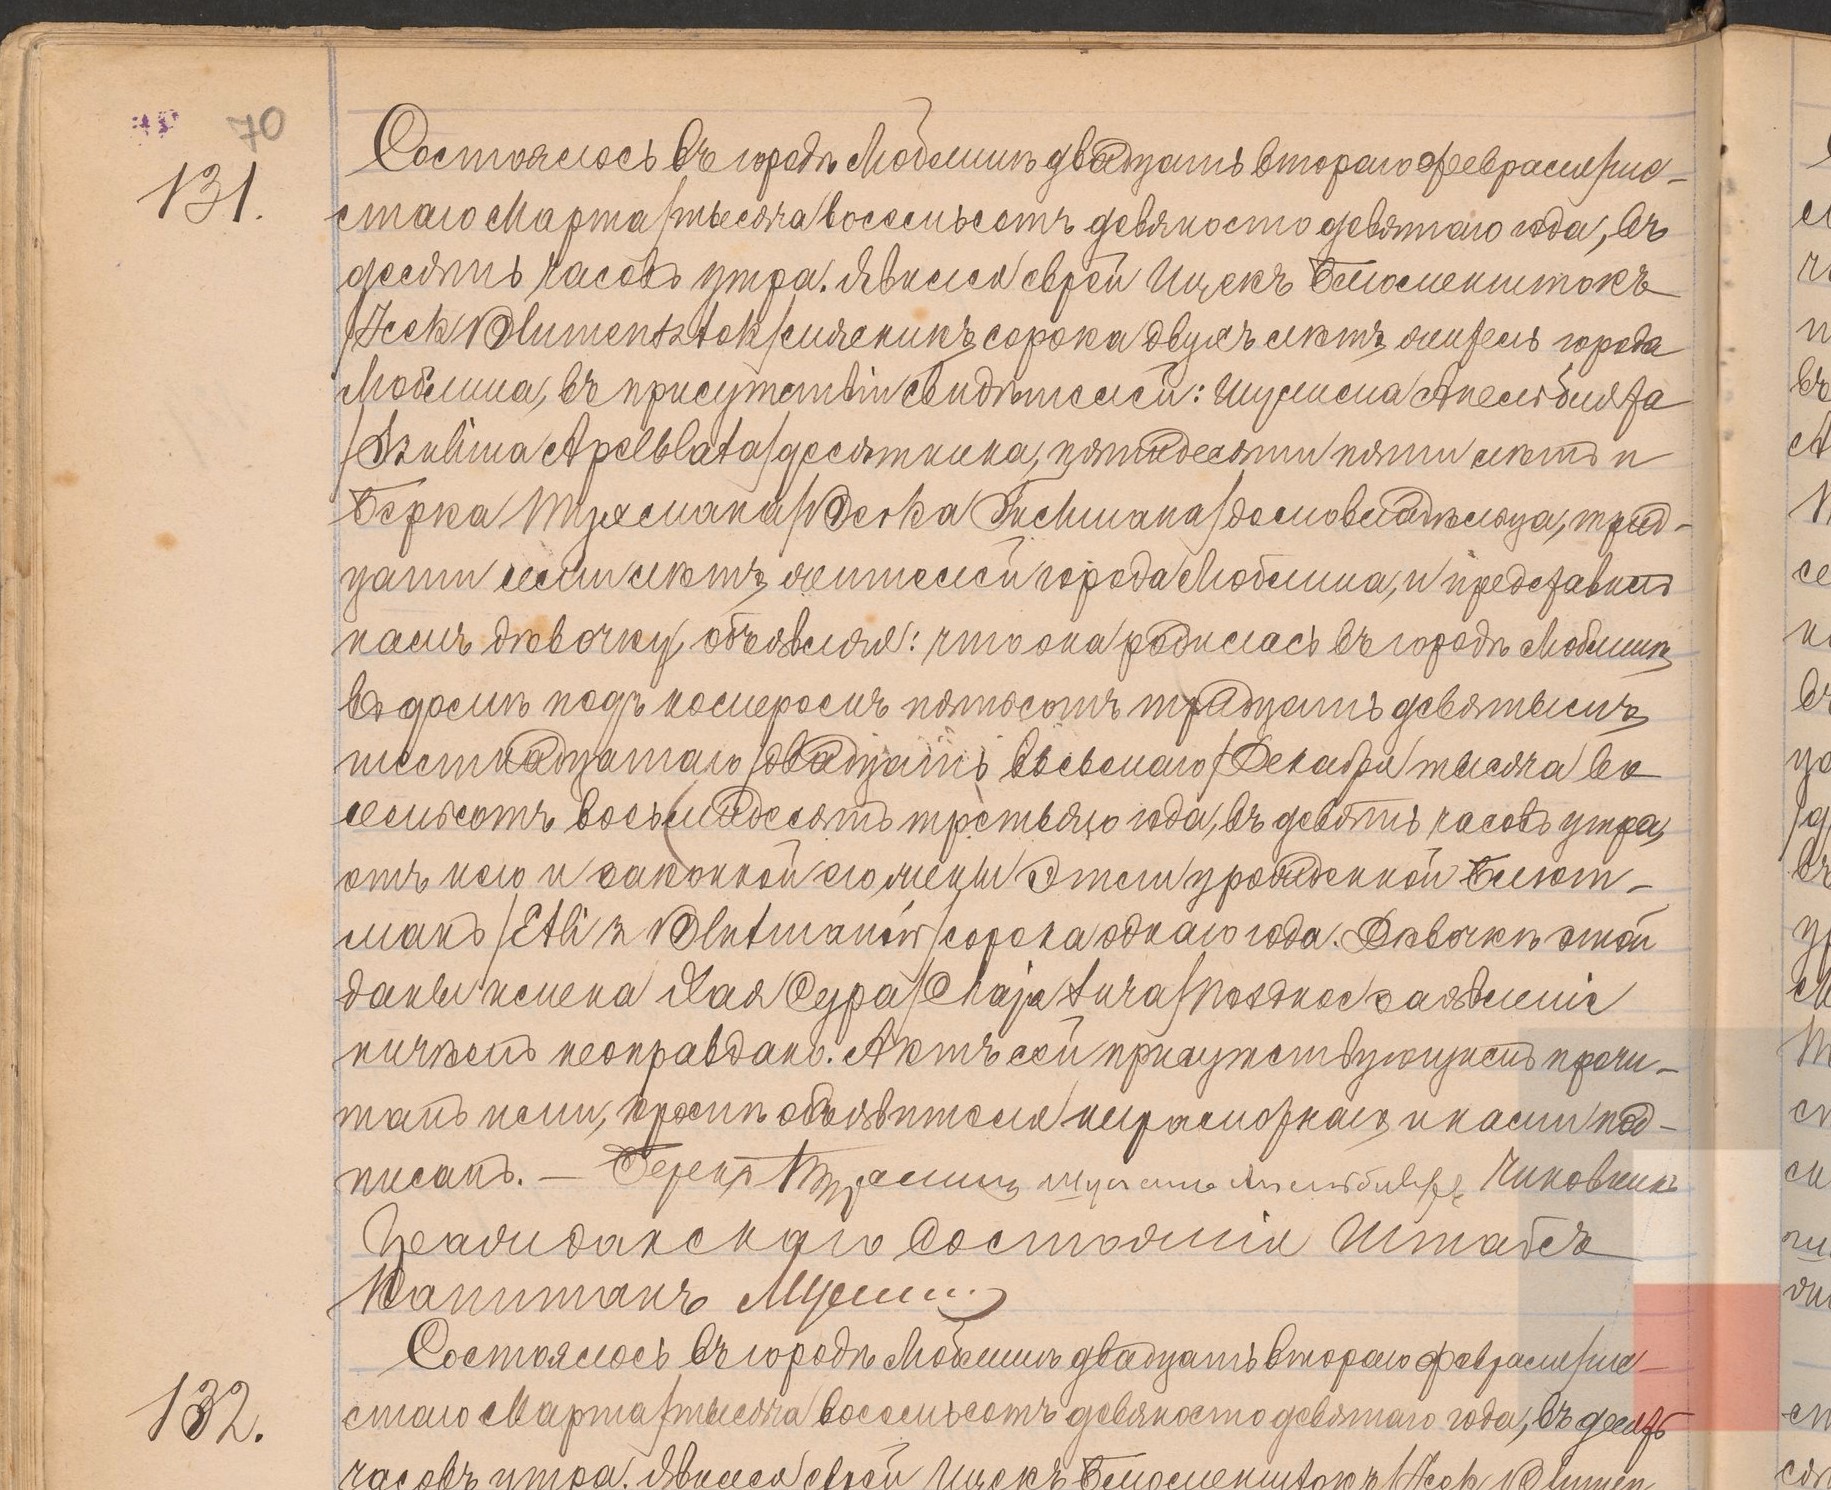 70
131.
Состоялось въ городѣ Люблинѣ двадцать втораго февраля/ше-
стаго Марта/тысяча восемьсотъ девяносто девятаго года, въ
десять часовъ утра. Явился еврей Ицекъ Блюменштокъ
/Icek Blumensztok/ сорока двухъ лѣтъ житель города
Люблина, въ присутствіи свидѣтелей: Шулима Апельблята
/Szulima Apelblata/десятника, пятидесяти пяти лѣтъ и
Берка Тухмана/Berka Tuchmana/домовладѣльца, трид-
цати семи лѣтъ жителей города Люблина, и представилъ
намъ дѣвочку, объявляя: что она родилась въ городѣ Люблинѣ
въ домѣ подъ номеромъ пятьсотъ тридцать девятымъ
шестнадцатаго/двадцать восьмаго/Декабря тысяча во
семьсотъ восьмидесятъ третьяго года, въ девять часовъ утра,
отъ него и законной его жены Этли урожденной Блют-
манъ/Etli z Blutmanów/сорока однаго года. Дѣвочкѣ этой
даны имена Хая Сура/Chaja Sura/Позднее заявленіе
ничѣмъ неоправдано. Актъ сей присутствующимъ прочи-
танъ нами, кромѣ объявителя неграмотнаго, и нами под-
писанъ. — Чиновникъ
Гражданскаго Состоянія Штабсъ
Капитанъ
132.
Состоялось въ городѣ Люблинѣ двадцать втораго февраля/ше-
стаго Марта/тысяча восемьсотъ девяносто девятаго года, въ десять
часовъ утра. Явился еврей Ицекъ Блюменштокъ/Icek Blumen